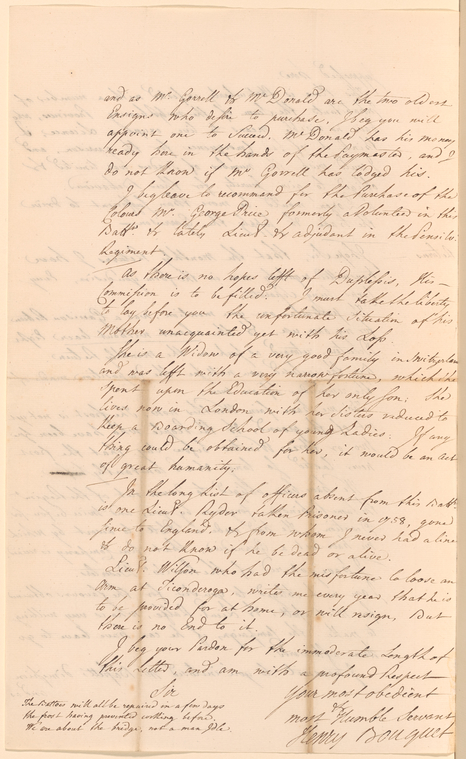 and as Mr. Gorrell & Mc Donald are the two oldest
Ensigns who desire to purchase, I beg you will
appoint one to Succeed. Mc Donald has his money
ready here in the hands of the Paymaster, and I
do not know if Mr. Gorrell has lodged his.
I beg leave to recommand for the Purchase of the
Colours Mr. George Price formerly a Volunteer in this
Batt.n & lately Lieut. & adjudant in the Pensilv.a
Regiment
As there is no hopes left of Duplessis, His
Commission is to be filled: I must take the liberty
to lay before you the unfortunate Situation of his
Mother unacquainted yet with his Loss.
She is a Widow of a very good family in Switzerland
and was left with a very narrow fortune, which she
Spent upon the Education of her only Son: She
lives now in London with her Sisters reduced to
keep a Boarding School of young Ladies. If any
thing could be obtained for her, it would be an act
of great humanity.
In the long List of officers absent from this Batt.n
is one Lieut. Ryder taken Prisoner in 1758, gone
since to England, & from whom I never had a line
& do not know if he be dead or alive.
Lieut. Wilson who had the misfortune to loose an
arm at Ticonderoga, writes me every year that he is
to be provided for at home, or will resign, But
there is no End to it.
I beg your Pardon for the immoderate Length of
this Letter, and am with a profound Respect
Sir
Your most obedient
most Humble Servant
Henry Bouquet
The Battoes will all be repaired in a few days
the frost having prevented before.
We are about the bridge, not a man Idle.